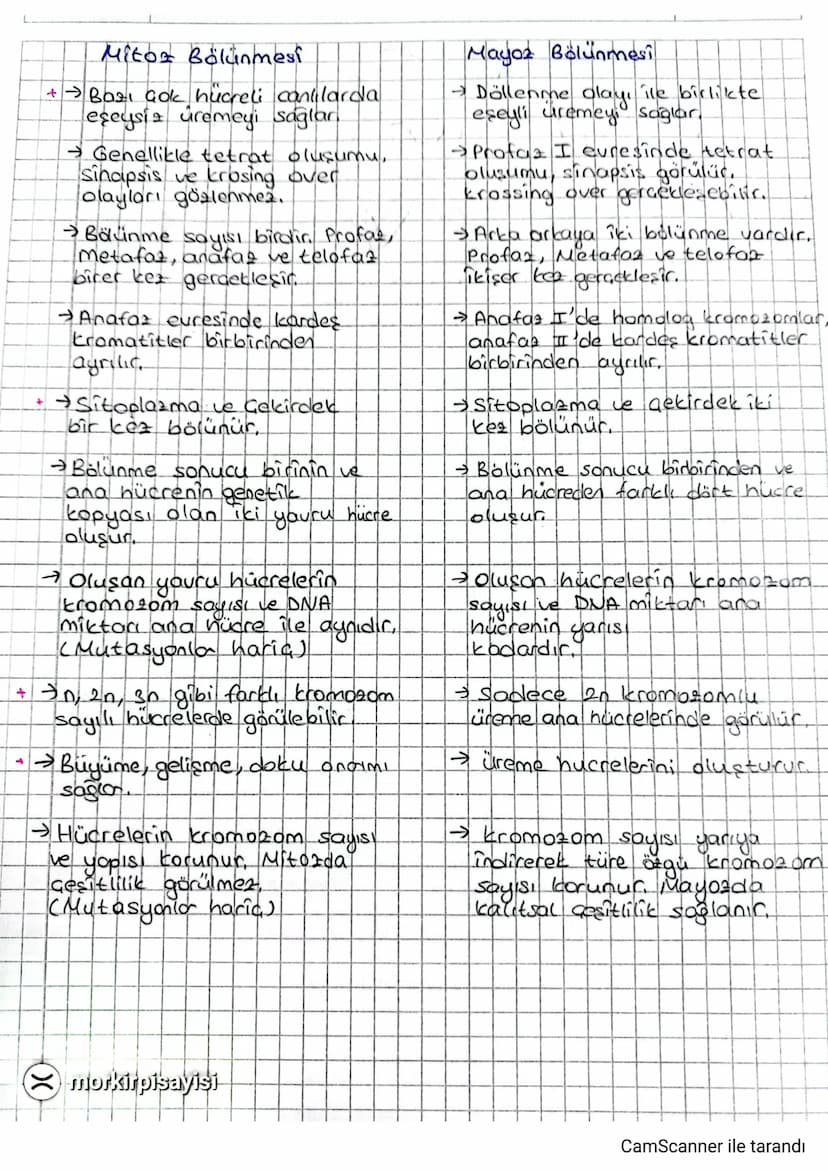 Mitoz Bölünmesi
+ → Bazı çok hücreli canlılarda
eşeysiz üremeyi sağlar.
→ Genellikle tetrat oluşumu,
sinapsis ve krosing over
olayları gözlenmez.
→ Bölünme sayısı birdir. Profaz,
Metafaz, anafaz ve telofaz
birer kez gerçekleşir.
→ Anafaz evresinde kardeş
kromatitler birbirinden
ayrılır.
+ → Sitoplazma ve Çekirdek
bir kez bölünür.
→ Bölünme sonucu birinin ve
ana hücrenin genetik
kopyası olan iki yavru hücre
oluşur.
→ Oluşan yavru hücrelerin
kromozom sayısı ve DNA
miktarı ana hücre ile aynıdır.
(Mutasyonlar hariç)
+ → n, 2n, 3n gibi farklı kromozom
sayılı hücrelerde görülebilir.
+ → Büyüme, gelişme, doku onarımı
sağlar.
→ Hücrelerin kromozom sayısı
ve yapısı korunur. Mitozda
çeşitlilik görülmez.
(Mutasyonlar hariç)
Mayoz Bölünmesi
→ Döllenme olayı ile birlikte
eşeyli üremeyi sağlar.
→ Profaz I evresinde tetrat
oluşumu, sinapsis görülür.
krossing over gerçekleşebilir.
→ Arka arkaya iki bölünme vardır.
Profaz, Metafaz ve telofaz
ikişer kez gerçekleşir.
→ Anafaz I'de homolog kromozomlar,
anafaz II'de kardeş kromatitler
birbirinden ayrılır.
→ Sitoplazma ve çekirdek iki
kez bölünür.
→ Bölünme sonucu birbirinden ve
ana hücreden farklı dört hücre
oluşur.
→ Oluşan hücrelerin kromozom
sayısı ve DNA miktarı ana
hücrenin yarısı
kadardır.
→ Sadece 2n kromozomlu
üreme ana hücrelerinde görülür.
→ üreme hucrelerini oluşturur.
→ kromozom sayısı yarıya
indirerek türe özgü kromozom
sayısı korunur. Mayozda
kalıtsal çeşitlilik sağlanır.
morkirpisayisi
CamScanner ile tarandı